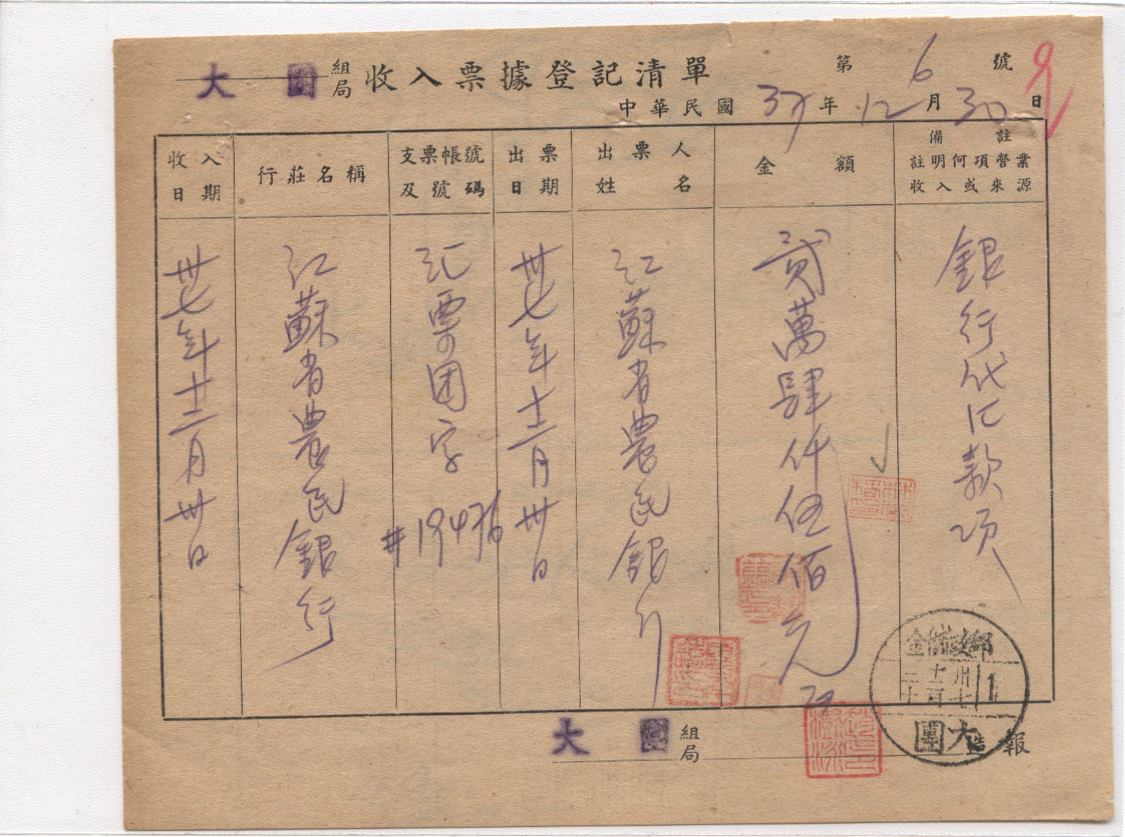 大團 組局 收入票據登記清單
第 6 號
中華民國 37 年 12 月 30 日
收入日期
行莊名稱
支票帳號及號碼
出票日期
出票人姓名
金額
備註
註明何項督業收入或來源
卅七年十二月卅日
江蘇省農民銀行
汇票团字
#19476
卅七年十二月卅日
江蘇省農民銀行
貳萬肆仟伍佰元
銀行代汇款项
郵政儲金
大團
大團 組局
造報